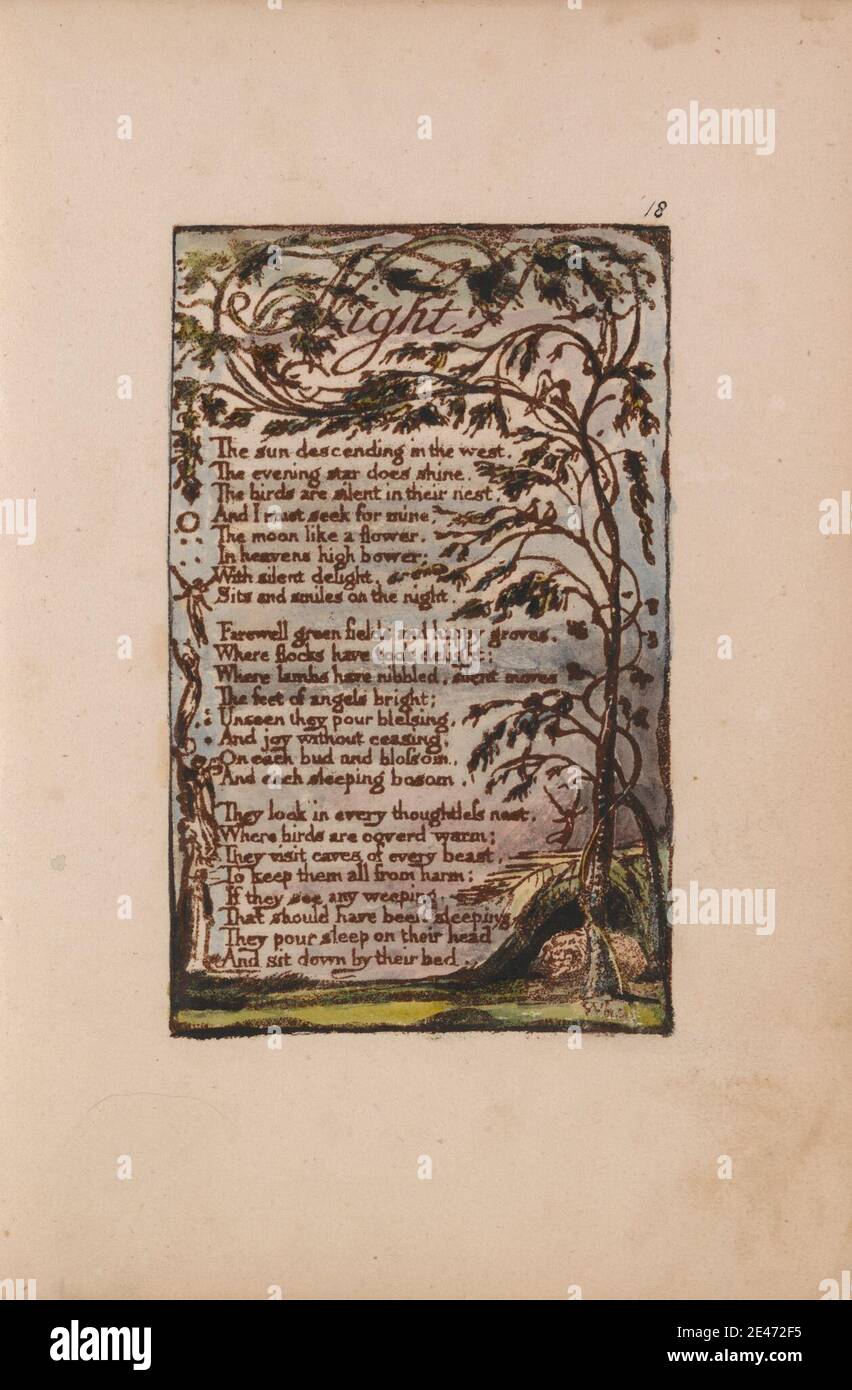 18
Night
The sun descending in the west.
The evening star does shine.
The birds are silent in their nest,
And I must seek for mine,
The moon like a flower,
In heavens high bower;
With silent delight,
Sits and smiles on the night.
Farewell green fields and happy groves,
Where flocks have took delight;
Where lambs have nibbled, silent moves
The feet of angels bright;
Unseen they pour blessing,
And joy without ceasing,
On each bud and blossom,
And each sleeping bosom.
They look in every thoughtless nest,
Where birds are coverd warm;
They visit caves of every beast,
To keep them all from harm;
If they see any weeping,
That should have been sleeping
They pour sleep on their head
And sit down by their bed.
alamy
a
alamy
Image ID: 2E472F5
www.alamy.com